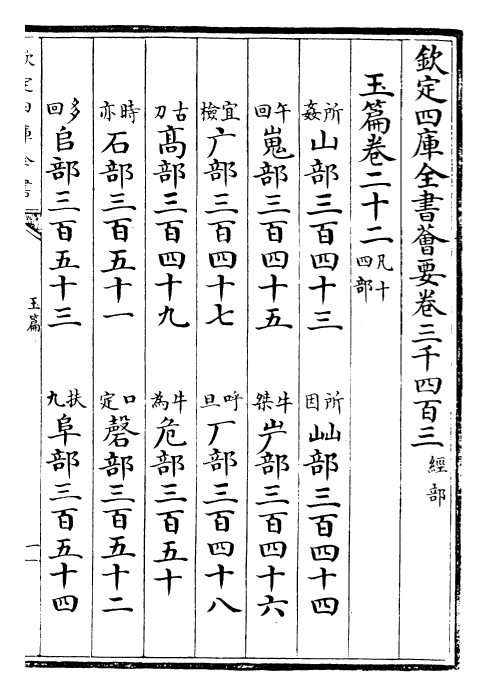 欽定四庫全書薈要卷三千四百三 經部
玉篇卷二十二 凡十四部
所姦 山部三百四十三 所因 屾部三百四十四
午回 嵬部三百四十五 牛桀 屵部三百四十六
宜檢 广部三百四十七 呼旦 厂部三百四十八
古刀 髙部三百四十九 牛為 危部三百五十
時亦 石部三百五十一 口定 磬部三百五十二
多回 𠂤部三百五十三 扶九 阜部三百五十四
欽定四庫全書
玉篇
一